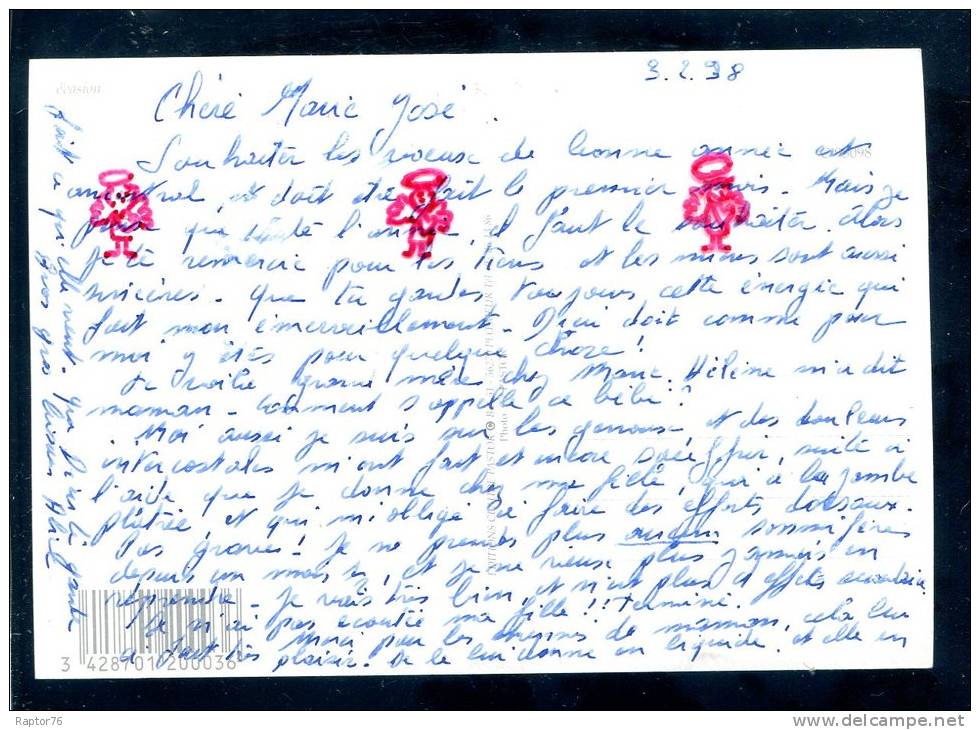 3.2.98
évasion
Chère Marie José.
Souhaiter les voeux de bonne année est
doit être fait le premier mois. Mais je
pense que toute l'année, il faut le souhaiter. Alors
je te remercie pour les tiens et les miens sont aussi
sincères. Que tu gardes toujours cette énergie qui
fait mon émerveillement. J'y doit comme pour
moi y êtes pour quelque chose!
Te voilà grand mère chez Marie Hélène m'a dit
maman. Comment s'appelle ce bébé?
Moi aussi je suis sur les genoux et des douleurs
intercostales m'ont fait et encore souffrir, suite à
l'aide que je donne chez ma fille, qui a la jambe
plâtrée et qui m'oblige à faire des efforts dorsaux.
Pas grave! Je ne prends plus aucun somnifère
depuis un mois, et je ne veux plus jamais en
reprendre. Je vais très bien, et n'ai plus d'effets secondaires
Je n'ai pas écouté ma fille!! terminé.
Merci pour les de maman, cela lui
a fait très plaisir. Je le lui donne en liquide et elle en
fait ce qu'elle veut. que Dieu te garde
Gros gros bisous
3 428701 200036
Raptor76
www.delcampe.net